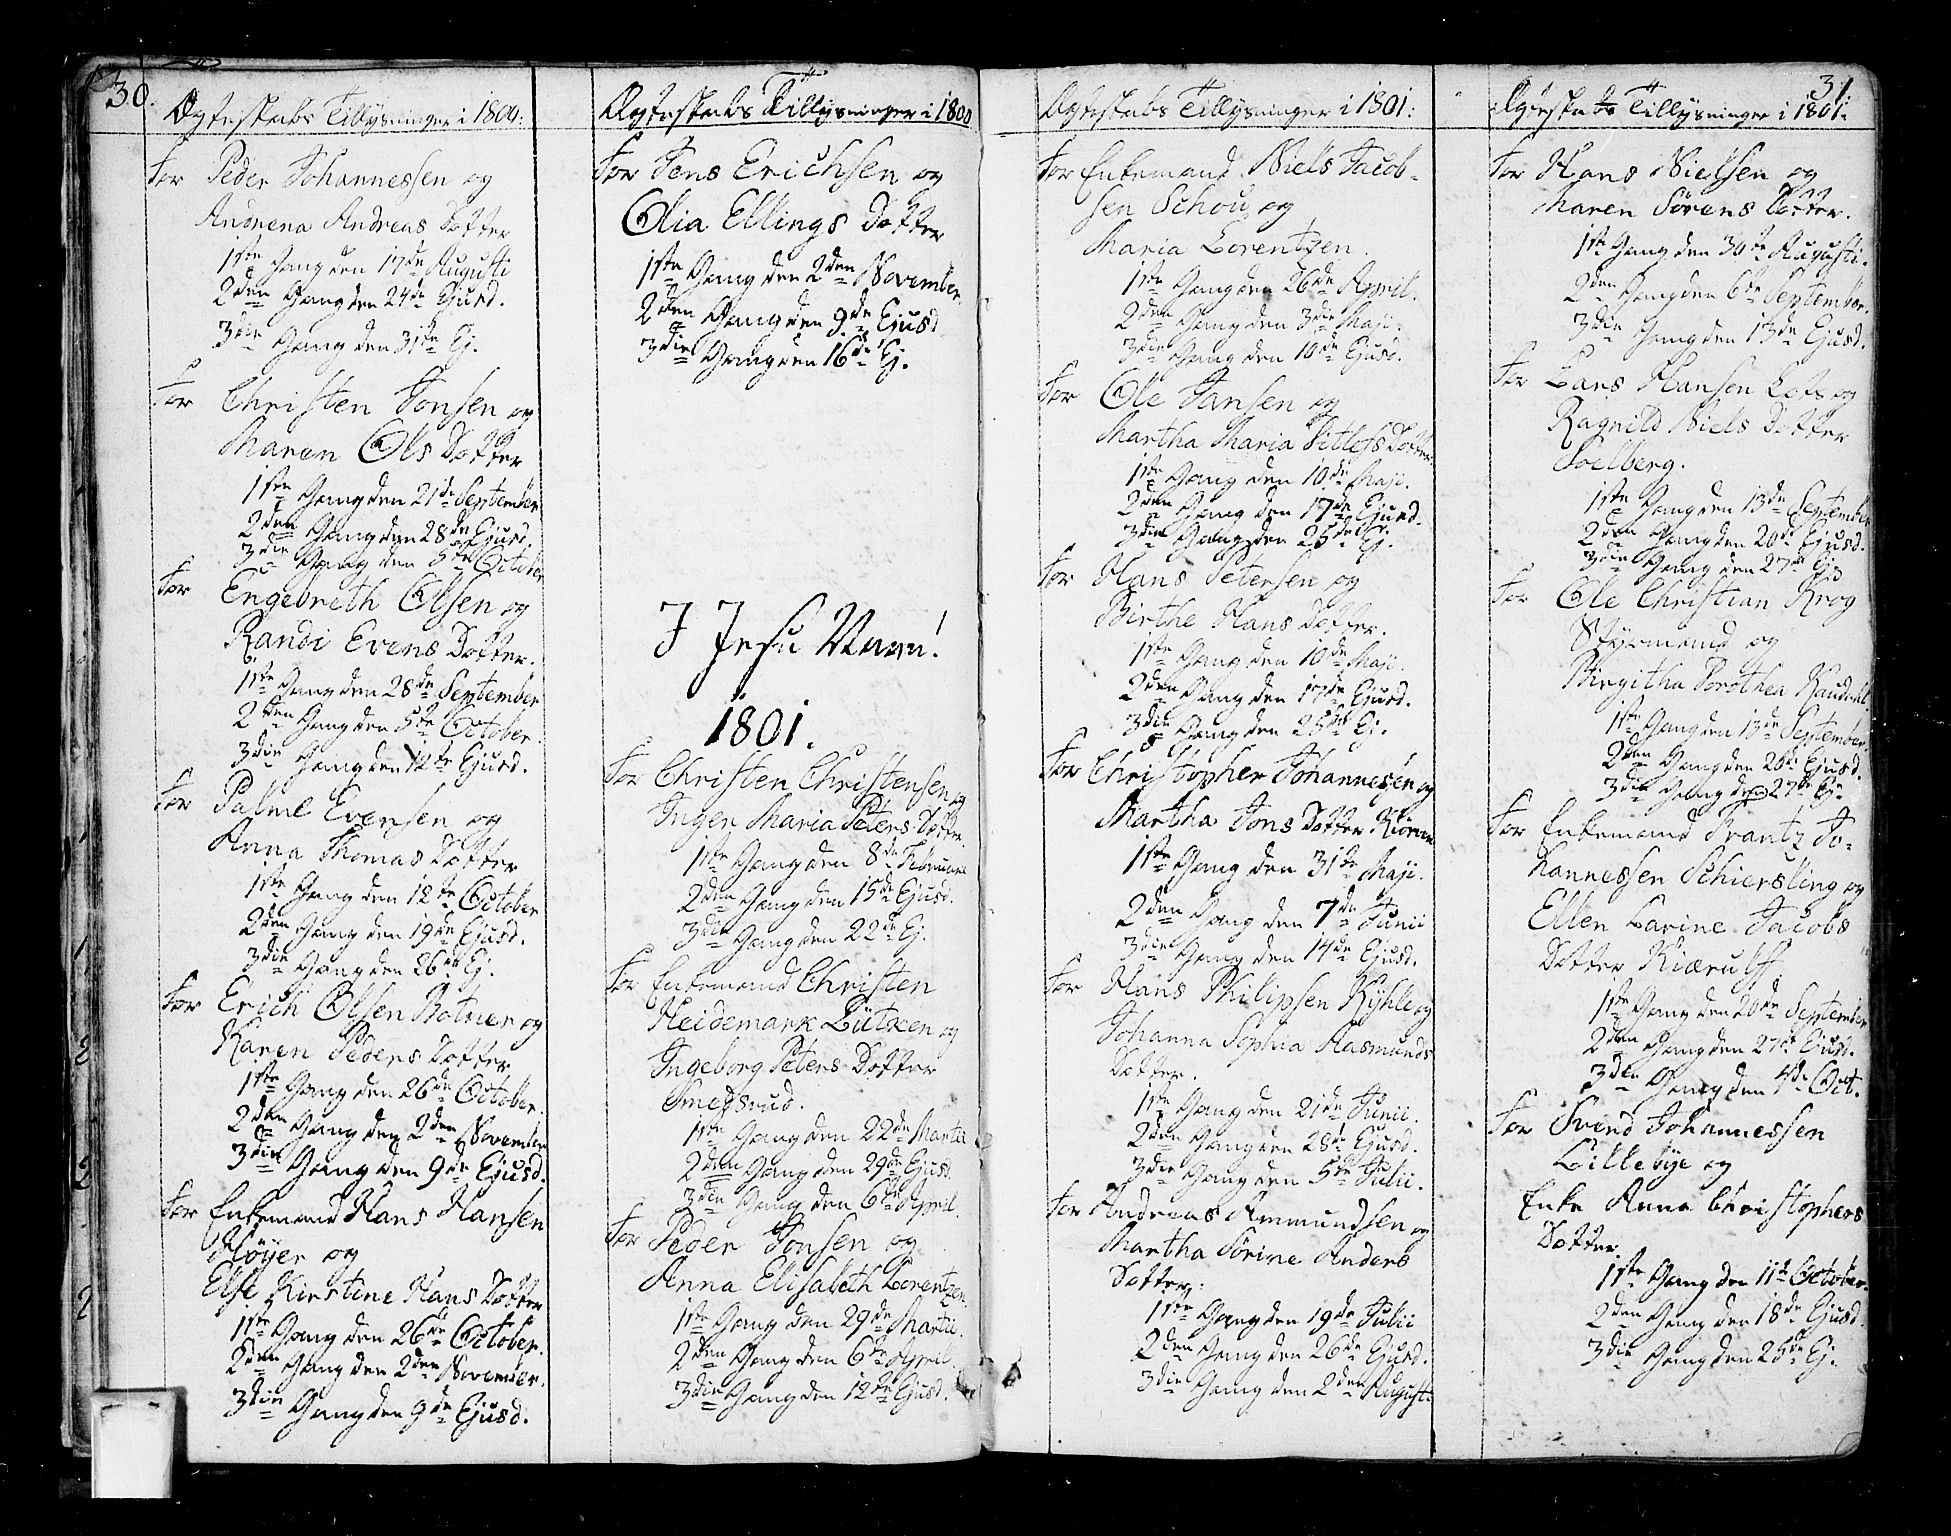 30.
Ægteskabs Tillysninger i 1800:
For Peder Johannessen og
Andrena Andreas Dotter
1ste Gang den 17de Augusti
2den Gang den 24de Ejusd.
3die Gang den 31te Ej.
For Christen Jonsen og
Maren Ols Dotter
1ste Gang den 21de September
2den Gang den 28de Ejusd.
3die Gang den 5te October
For Engebreth Olsen og
Randi Evens Dotter.
1ste Gang den 28de September
2den Gang den 5te October.
3die Gang den 12te Ejusd.
For Palme Evensen og
Anna Thomas Dotter
1ste Gang den 12te October
2den Gang den 19de Ejusd.
3die Gang den 26de Ej.
For Erich Olsen Botner og
Karen Peders Dotter
1ste Gang den 26de October.
2den Gang den 2den November
3die Gang den 9de Ejusd.
For Enkemand Hans Hansen
Høyer og
Else Kirstine Hans Dotter
1ste Gang den 26de October.
2den Gang den 2den November.
3die Gang den 9de Ejusd.
Ægteskabs Tillysninger i 1800
For Jens Erichsen og
Olia Ellings Dotter
1ste Gang den 2den November
2den Gang den 9de Ejusd
3die Gang den 16de Ej.
I Jesu Navn!
1801.
For Christen Christensen og
Inger Maria Peters Dotter
1ste Gang den 8de Februarii
2den Gang den 15de Ejusd.
3die Gang den 22de Ej.
For Enkemand Christen
Heidemark Lützen og
Ingeborg Peters Dotter
Smedsrud.
1ste Gang den 22de Martii
2den Gang den 29de Ejusd.
3die Gang den 6te April.
For Peder Jonsen og
Anna Elisabeth Lorentzen
1ste Gang den 29de Martii.
2den Gang den 6te April.
3die Gang den 12te Ejusd.
Ægteskabs Tillysninger i 1801:
For Enkemand Niels Jacob-
sen Schou og
Maria Lorentzen.
1ste Gang den 26de April.
2den Gang den 3die Maji.
3die Gang den 10de Ejusd.
For Ole Jansen og
Martha Maria Ditlefs Dotter.
1ste Gang den 10de Maji.
2den Gang den 17de Ejusd.
3die Gang den 25de Ej.
For Hans Petersen og
Birthe Hans Dotter.
1ste Gang den 10de Maji.
2den Gang den 17de Ejusd.
3die Gang den 25de Ej.
For Christopher Johannesen og
Martha Jons Dotter
1ste Gang den 31de Maji.
2den Gang den 7de Junii
3die Gang den 14de Ejusd.
For Hans Philipsen Kyhle og
Johanna Sophia Rasmunds
Dotter.
1ste Gang den 21de Junii.
2den Gang den 28de Ejusd.
3die Gang den 5te Julii.
For Andreas Ammundsen og
Martha Sørine Anders
Dotter:
1ste Gang den 19de Julii
2den Gang den 26de Ejusd.
3die Gang den 2den Augusti.
31.
Ægteskabs Tillysninger i 1801.
For Hans Nielsen og
Maren Sørens Dotter.
1ste Gang den 30te Augusti.
2den Gang den 6te September.
3die Gang den 13de Ejusd.
For Lars Hansen Lofs og
Ragnild Niels Dotter
Soelberg.
1ste Gang den 13de September
2den Gang den 20de Ejusd.
3die Gang den 27de Ej.
For Ole Christian Krog
Styrmand og
Birgitha Dorothea
1ste Gang den 13de September
2den Gang den 20de Ejusd.
3die Gang den 27de Ej.
For Enkemand Frantz Jo-
hannessen Schiersling og
Ellen Larine Jacobs
Dotter Kiærulff
1ste Gang den 20de September
2den Gang den 27de Ejusd.
3die Gang den 4de Oct.
For Svend Johannessen
Lillebye og
Enke Anna Christophers
Dotter.
1ste Gang den 11te October.
2den Gang den 18de Ejusd.
3die Gang den 25de Ej.